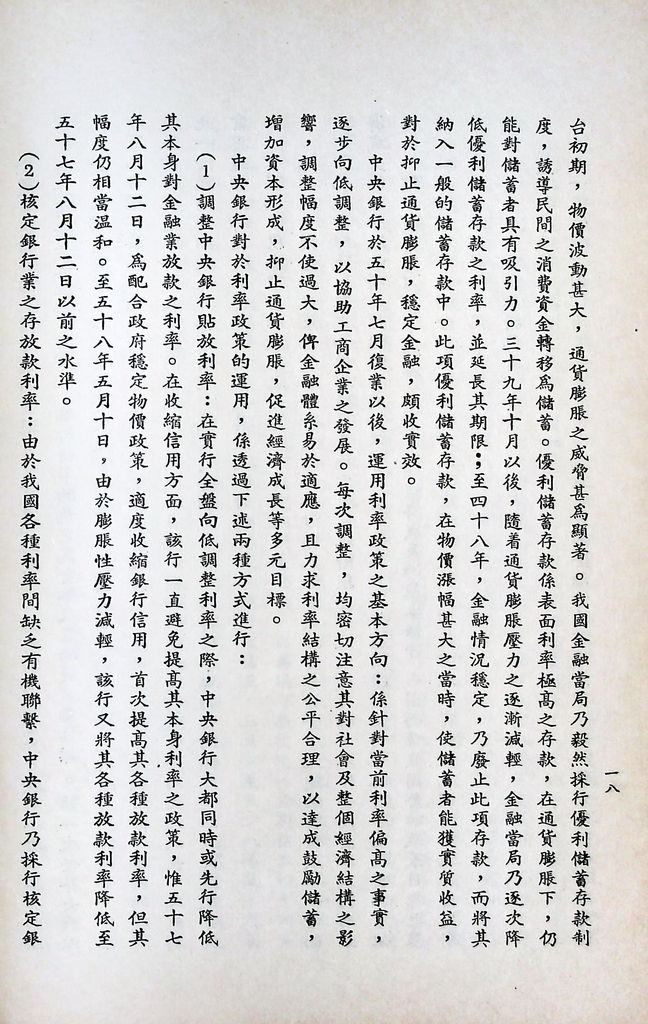 台初期，物價波動甚大，通貨膨脹之威脅甚爲顯著。我國金融當局乃毅然採行優利儲蓄存款制
度，誘導民間之消費資金轉移爲儲蓄。優利儲蓄存款係表面利率極高之存款，在通貨膨脹下，仍
能對儲蓄者具有吸引力。三十九年十月以後，隨着通貨膨脹壓力之逐漸減輕，金融當局乃逐次降
低優利儲蓄存款之利率，並延長其期限；至四十八年，金融情況穩定，乃廢止此項存款，而將其
納入一般的儲蓄存款中。此項優利儲蓄存款，在物價漲幅甚大之當時，使儲蓄者能獲實質收益，
對於抑止通貨膨脹，穩定金融，頗收實效。
中央銀行於五十年七月復業以後，運用利率政策之基本方向：係針對當前利率偏高之事實，
逐步向低調整，以協助工商企業之發展。每次調整，均密切注意其對社會及整個經濟結構之影
響，調整幅度不使過大，俾金融體系易於適應，且力求利率結構之公平合理，以達成鼓勵儲蓄，
增加資本形成，抑止通貨膨脹，促進經濟成長等多元目標。
中央銀行對於利率政策的運用，係透過下述兩種方式進行：
(1)調整中央銀行貼放利率：在實行全盤向低調整利率之際，中央銀行大都同時或先行降低
其本身對金融業放款之利率。在收縮信用方面，該行一直避免提高其本身利率之政策，惟五十七
年八月十二日，爲配合政府穩定物價政策，適度收縮銀行信用，首次提高其各種放款利率，但其
幅度仍相當溫和。至五十八年五月十日，由於膨脹性壓力減輕，該行又將其各種放款利率降低至
五十七年八月十二日以前之水準。
(2)核定銀行業之存放款利率：由於我國各種利率間缺乏有機聯繫，中央銀行乃採行核定銀
一八